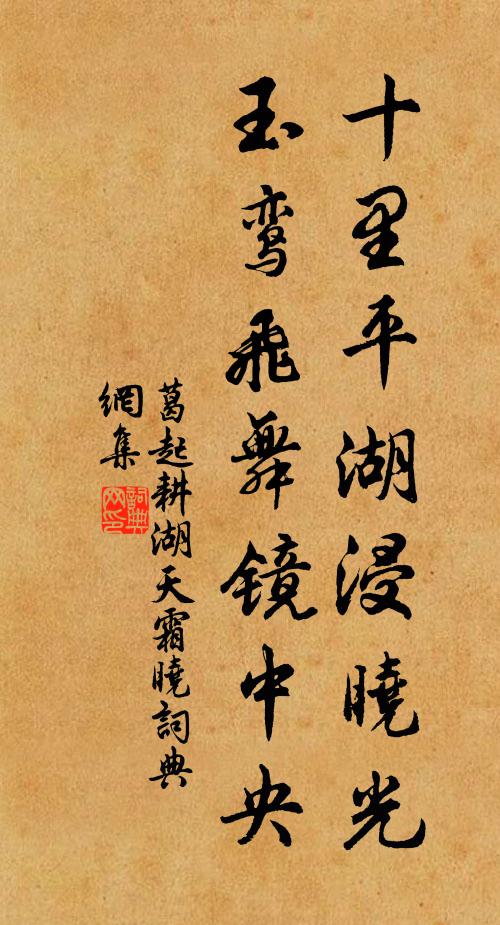 十里平湖浸曉光
玉鸾飛舞镜中央
葛起耕湖天霜曉詞典
網集
詞典
网印